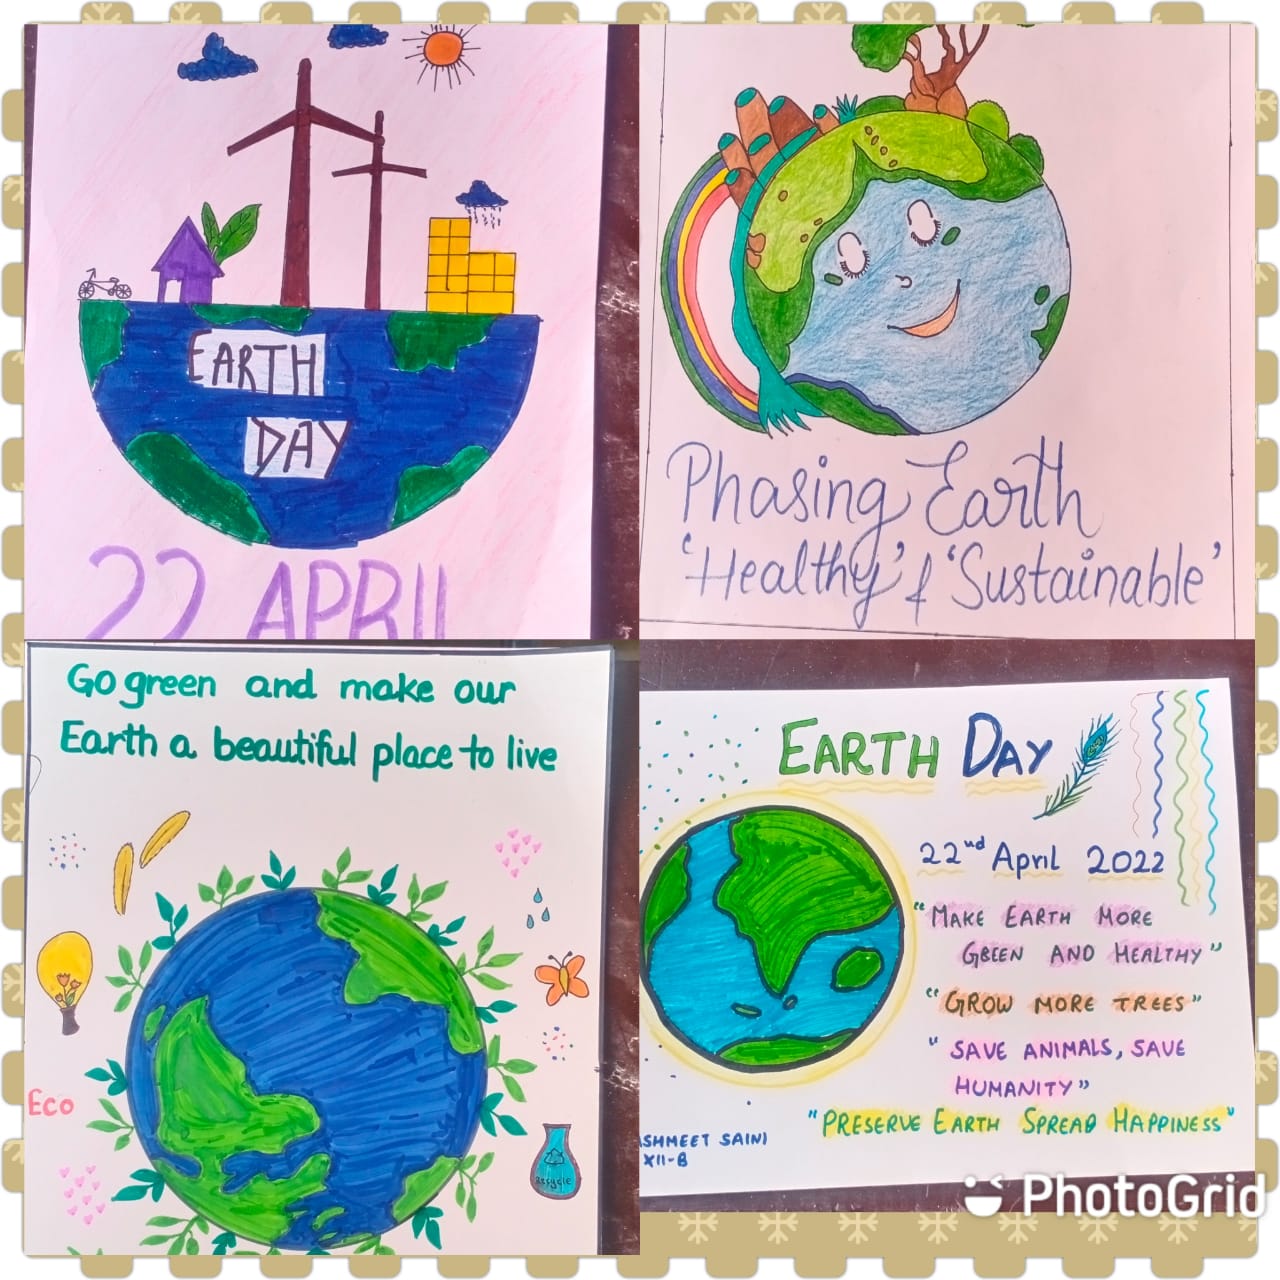 EARTH
DAY
22 APRIL
Phasing Earth
'Healthy' & 'Sustainable'
Go green and make our
Earth a beautiful place to live
Eco
Recycle
EARTH DAY
22nd April 2022
"MAKE EARTH MORE
GREEN AND HEALTHY"
"GROW MORE TREES"
"SAVE ANIMALS, SAVE
HUMANITY"
"PRESERVE EARTH SPREAD HAPPINESS"
SHMEET SAINI
XII-B
PhotoGrid